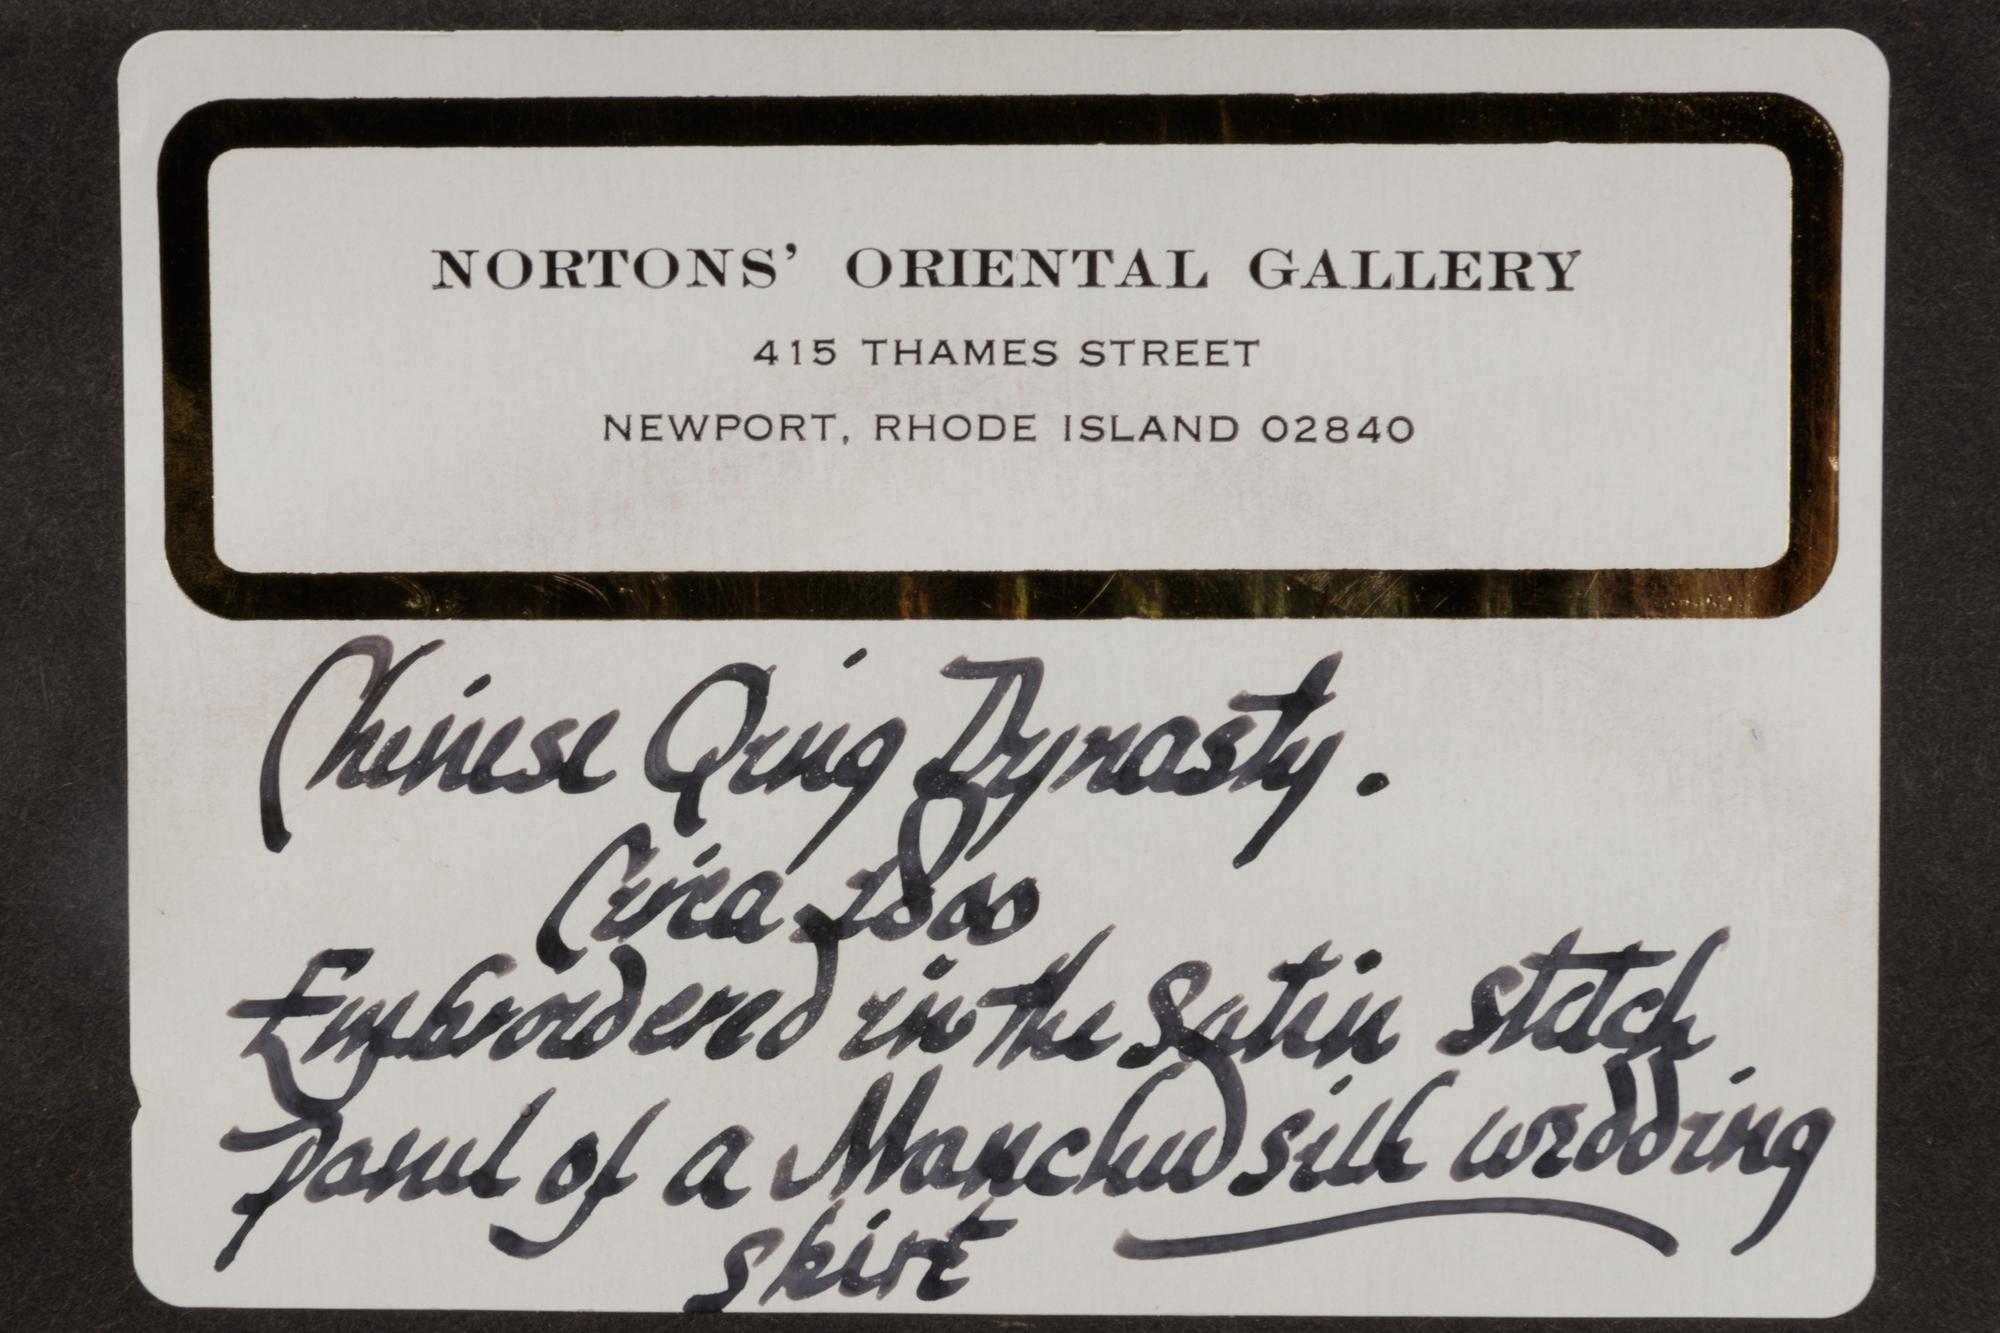 NORTONS' ORIENTAL GALLERY
415 THAMES STREET
NEWPORT, RHODE ISLAND 02840
Chinese Qing Dynasty.
Circa 1800
Embroidered in the Satin stitch
panel of a Manchu silk wedding
skirt